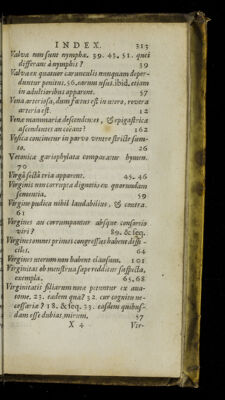 INDEX. 313
Valvæ non sunt nymphæ. 39. 43. 51. quei
differant à nymphis? 39
Valvæ ex quatuor carunculis nunquam deper-
duntur penitus. 56. earum usus. ibid. etiam
in adultioribus apparent. 57
Vena arteriosa, dum fœtus est in utero, revera
arteria est. 12
Venæ mammariæ descendentes, & epigastricæ
ascendentes an coeant? 162
Vesica concinetur in parvo ventre strictè sum-
to. 26
Vetonica gariophylata comparatur hymen.
70
Virgã sectũ tria apparent. 45. 46
Virginis non corruptæ dignatio ex quorundam
sententia. 59
Virgine pudica nihil laudabilius, & contra.
61
Virgines an corrumpantur absque consortio
viri? 89. & seq.
Virgines omnes primos congressus habent diffi-
ciles. 64
Virgines uterum non habent clausum. 101
Virginitas ob menstrua sæpe redditur suspecta,
exempla. 65, 68
Virginitatis filiarum notæ petuntur ex ana-
tome. 23. eædem quæ? 32. cur cognitu ne-
cessariæ? 18. & seq. 23. easdem quibus-
dam esse dubias, mirum. 57
X 4 Vir-